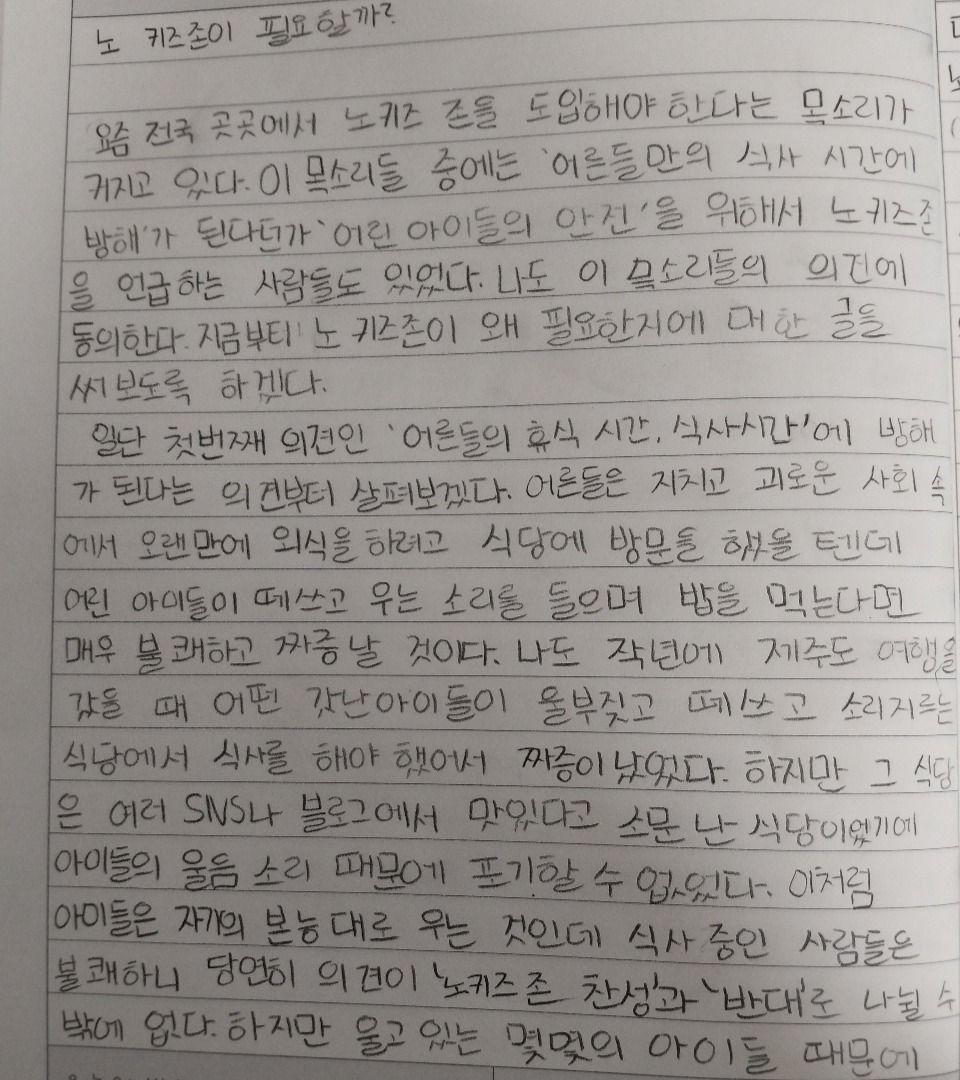 노 키즈존이 필요할까?
요즘 전국 곳곳에서 노키즈 존을 도입해야 한다는 목소리가
커지고 있다. 이 목소리들 중에는 '어른들만의 식사 시간에
방해'가 된다던가 '어린 아이들의 안전'을 위해서 노키즈존
을 언급하는 사람들도 있었다. 나도 이 목소리들의 의견에
동의한다. 지금부터 노 키즈존이 왜 필요한지에 대한 글을
써보도록 하겠다.
일단 첫번째 의견인 '어른들의 휴식 시간, 식사시간'에 방해
가 된다는 의견부터 살펴보겠다. 어른들은 지치고 괴로운 사회 속
에서 오랜만에 외식을 하려고 식당에 방문을 했을 텐데
어린 아이들이 떼쓰고 우는 소리를 들으며 밥을 먹는다면
매우 불쾌하고 짜증날 것이다. 나도 작년에 제주도 여행을
갔을 때 어떤 갓난아이들이 울부짖고 떼쓰고 소리지르는
식당에서 식사를 해야 했어서 짜증이 났었다. 하지만 그 식당
은 여러 SNS나 블로그에서 맛있다고 소문 난 식당이었기에
아이들의 울음 소리 때문에 포기할 수 없었다. 이처럼
아이들은 자기의 본능대로 우는 것인데 식사 중인 사람들은
불쾌하니 당연히 의견이 '노키즈존 찬성'과 '반대'로 나뉠 수
밖에 없다. 하지만 울고 있는 몇몇의 아이들 때문에